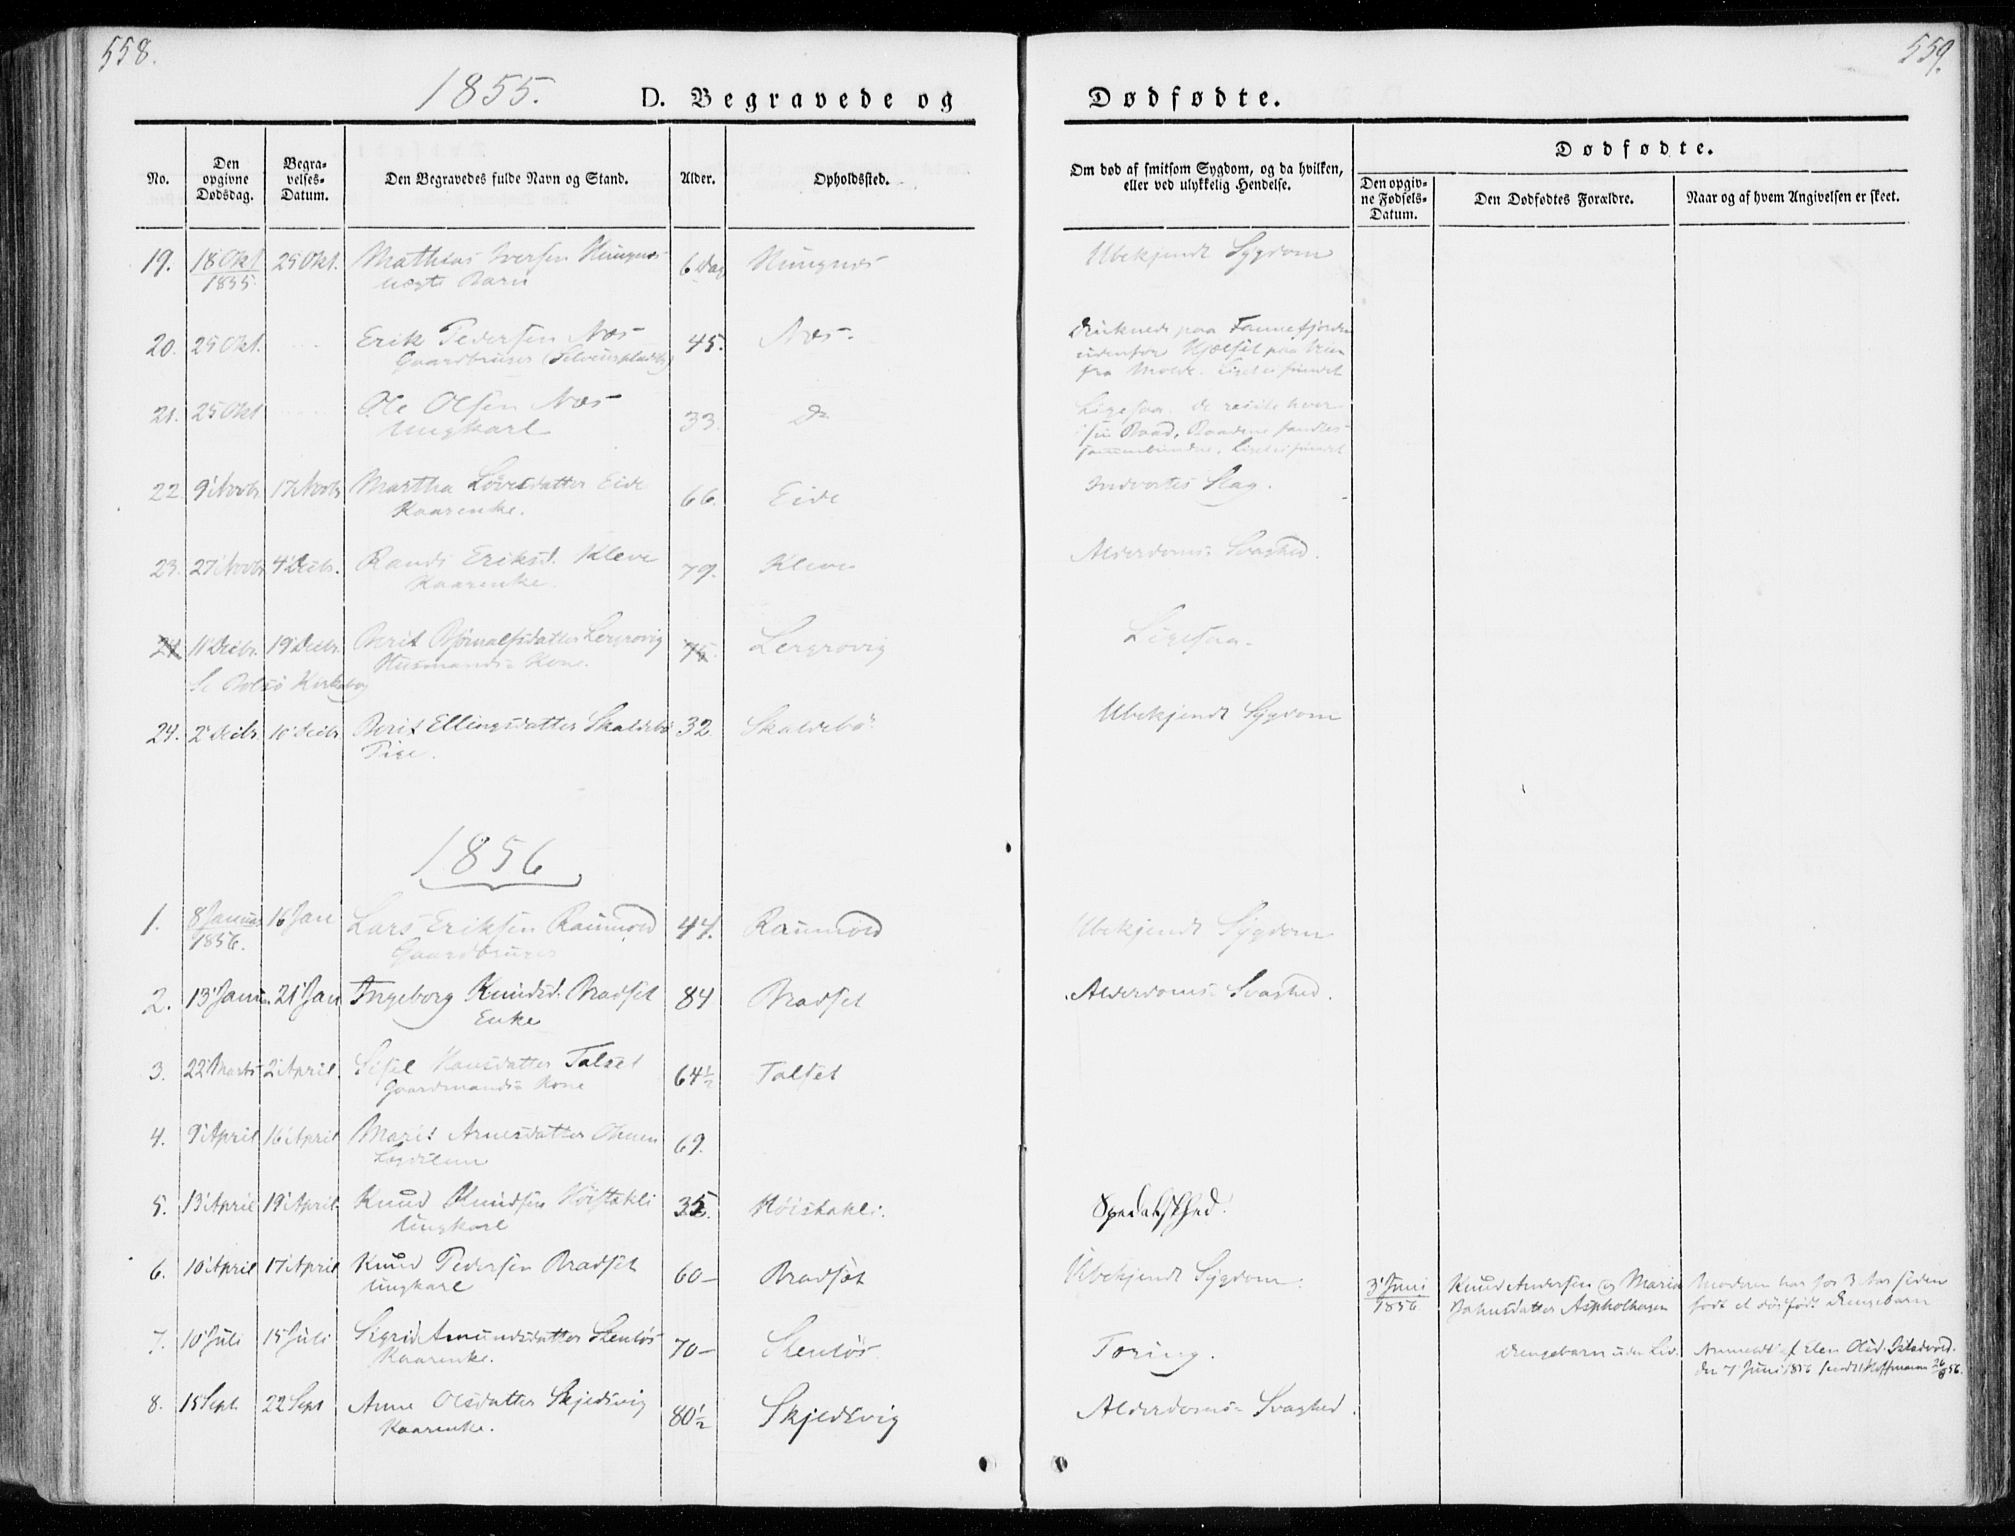 558.
559.
1855.
D. Begravede og
Dødfødte.
No.
Den opgivne Dødsdag.
Begravelses-Datum.
Den Begravedes fulde Navn og Stand.
Alder.
Opholdssted.
Om død af smitsom Sygdom, og da hvilken, eller ved ulykkelig Hendelse.
Dødfødte.
Den opgivne Fødsels-Datum.
Den Dødfødtes Forældre.
Naar og af hvem Angivelsen er skeet.
19. 18 Okt 1855 25 Okt. Mathias Iversen 6 Dag Ubekjendt Sygdom
uægte Barn
20. 25 Okt. Erik Pedersen Næs 45. Næs. Druknede paa Fannefjorden
Gaardbruger udenfor Hjelset paa Veien
fra Molde. Liget ei fundet
21. 25 Okt Ole Olsen Næs 33. Do Ligesaa. De reiste hver
Ungkarl i sin Baad, Baadene fandtes
sammenbundne. Liget ei fundet
22. 9 Novbr 17 Novbr Martha Eide 66. Eide Indvortes Slag.
Kaarenke.
23. 27 Novbr 4 Decbr. Randi Eriksd. Kleve 79. Kleve Alderdoms Svaghed.
Kaarenke.
24 11 Decbr. 19 Decbr. Berit Lergrovig 75. Lergrovig Ligesaa.
Husmands Kone.
Se Bolsø Kirkebog
24. 2 Decbr. 10 Decbr Berit Ellingsdatter Skaldebø 32 Skaldebø Ubekjendt Sygdom
Pige.
1856
1. 8 Januar 1856. 16 Jan Lars Eriksen 44. Ubekjendt Sygdom
Gaardbruger
2. 13 Januar 21 Jan Ingeborg Knudsd. Bradset 84 Bradset Alderdoms Svaghed.
Enke
3. 22 Marts 2 April. Sisel Hansdatter Talset 64½ Talset
Gaardmands Kone
4. 9 April 16 April Marit Arnesdatter 69.
5. 13 April 19 April Knud Knudsen Höistakli 35. Höistakli. Spedalskhed.
Ungkarl
6. 10 April 17 April Knud Pedersen Bradset 60 — Bradset Ubekjendt Sygdom.
Ungkarl
3 Juni 1856 Knud Andersen og Marit Moderen har for 3 Aar siden
Aspholhagen født et dødfødt Drengebarn
7. 10 Juli 15 Juli Sigrid Amundsdatter Stenløs 70 — Stenløs Tæring.
Kaarenke.
Drengebarn uden Liv. Anmeldt af Elen Olsd.
den 7 Juni 1856 sendt Hoffmann 26/8 56.
8. 15 Sept. 22 Sept Anne Olsdatter Skjelsvig 80½ Skjelsvig Alderdoms Svaghed.
Kaarenke.